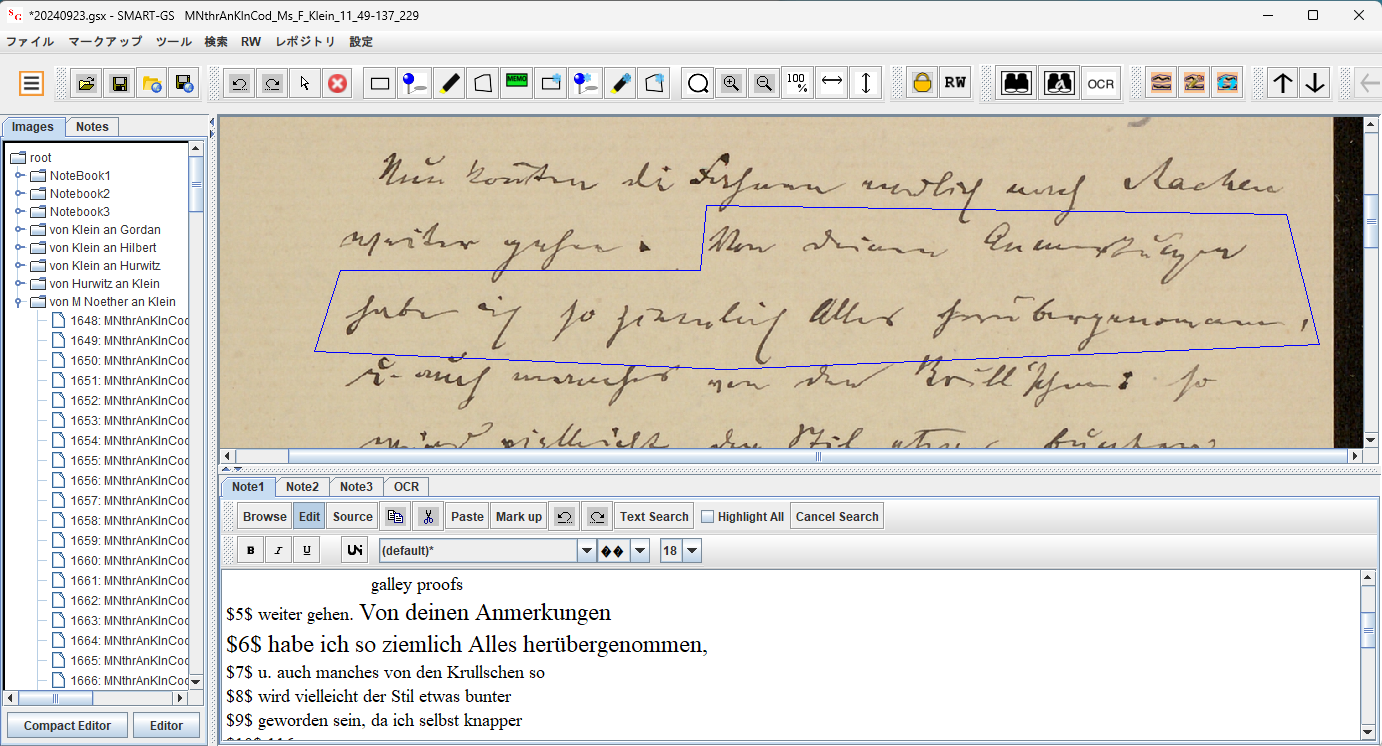 *20240923.gsx - SMART-GS MNthrAnKlnCod_Ms_F_Klein_11_49-137_229
ファイル マークアップ ツール 検索 RW レポジトリ 設定
MEMO 100 % RW A OCR
Images Notes
root
NoteBook1
Notebook2
Notebook3
von Klein an Gordan
von Klein an Hilbert
von Klein an Hurwitz
von Hurwitz an Klein
von M Noether an Klein
1648: MNthrAnKlnCod
1649: MNthrAnKlnCod
1650: MNthrAnKlnCod
1651: MNthrAnKlnCod
1652: MNthrAnKlnCod
1653: MNthrAnKlnCod
1654: MNthrAnKlnCod
1655: MNthrAnKlnCod
1656: MNthrAnKlnCod
1657: MNthrAnKlnCod
1658: MNthrAnKlnCod
1659: MNthrAnKlnCod
1660: MNthrAnKlnCod
1661: MNthrAnKlnCod
1662: MNthrAnKlnCod
1663: MNthrAnKlnCod
1664: MNthrAnKlnCod
1665: MNthrAnKlnCod
1666: MNthrAnKlnCod
Compact Editor Editor
Nun die endlich nach Aachen
weiter gehen. Von deinen Anmerkungen
habe ich so ziemlich Alles herübergenommen,
u. auch manches von den so
wird vielleicht der Stil etwas bunter
Note1 Note2 Note3 OCR
Browse Edit Source Paste Mark up Text Search Highlight All Cancel Search
B I U (default)* �� 18
galley proofs
$5$ weiter gehen. Von deinen Anmerkungen
$6$ habe ich so ziemlich Alles herübergenommen,
$7$ u. auch manches von den Krullschen so
$8$ wird vielleicht der Stil etwas bunter
$9$ geworden sein, da ich selbst knapper